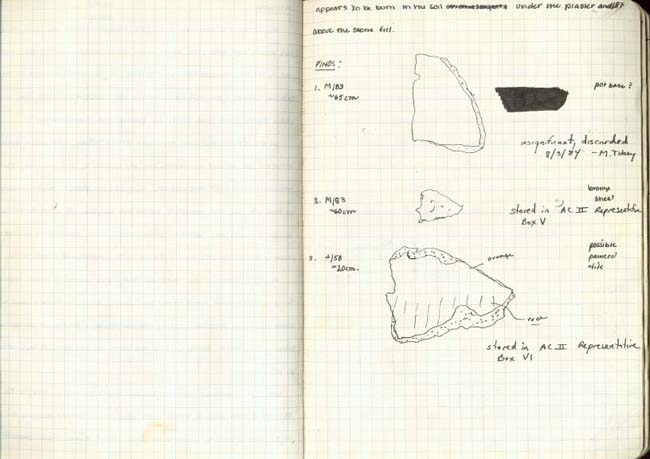 appears to be burn in the soil under the plaster and
above the stone fill.
FINDS:
1. M/83
~45cm
pot base?
insignificant, discarded
8/3/84 - M.
2. M/83
~60cm
bronze
sheet
stored in AC II Representative
Box V
3. /58
~20cm.
orange
possible
painted
tile
red
stored in AC II Representative
Box VI